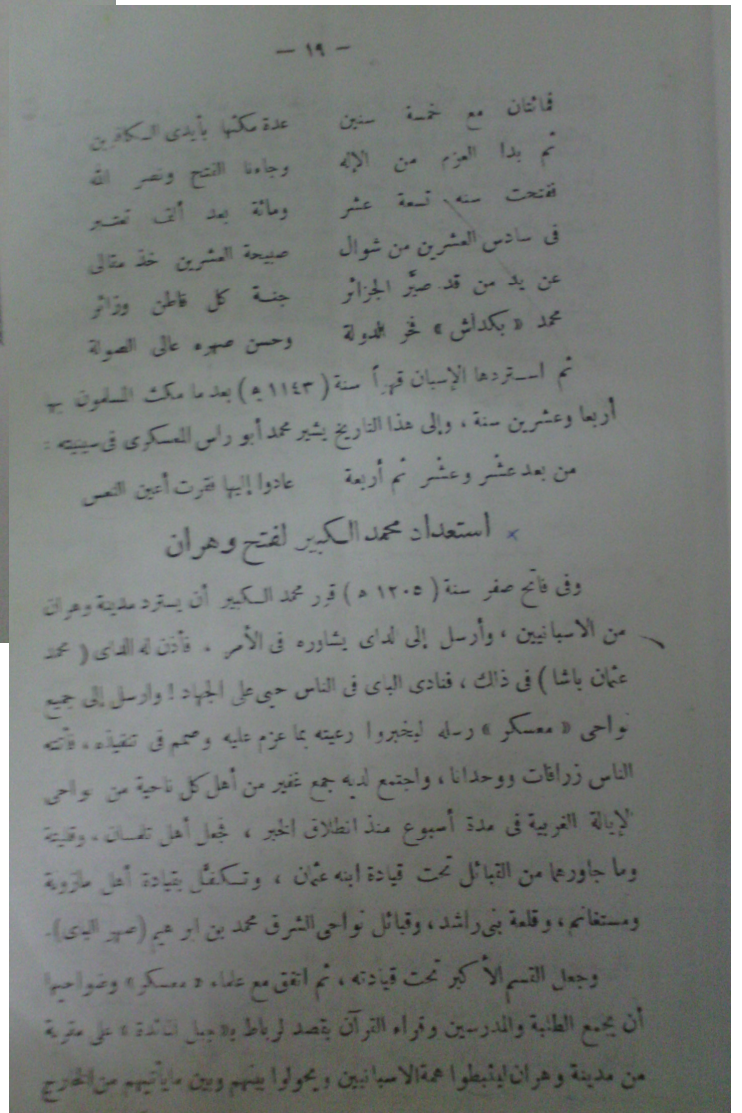 — ١٩ —
فمائتان مع خمسة سنين عدة مكثها بأيدى الكافرين
ثم بدا العزم من الإله وجاءنا الفتح ونصر الله
ففتحت سنه تسعة عشر ومائة بعد ألف تعتبر
فى سادس العشرين من شوال صبيحة العشرين خذ مقالى
عن يد من قد صيّر الجزائر جنة كل قاطن وزائر
محمد « بكداش » فخر الدولة وحسن صهره عالى الصولة
ثم استردها الإسبان قهراً سنة ( ١١٤٣ ه ) بعد ما مكث المسلمون بها
أربعا وعشرين سنة ، وإلى هذا التاريخ يشير محمد أبو راس المعسكرى فى سينيته :
من بعد عشْر وعشْر ثم أربعة عادوا إليها فقرت أعين النعس
استعداد محمد الكبير لفتح وهران
وفى فاتح صفر سنة ( ١٢٠٥ ه ) قرر محمد الكبير أن يسترد مدينة وهران
من الاسبانيين ، وأرسل إلى الداى يشاوره فى الأمر . فأذن له الداى ( محمد
عثمان باشا ) فى ذلك ، فنادى الباى فى الناس حيى على الجهاد ! وارسل إلى جميع
نواحى « معسكر » رسله ليخبروا رعيته بما عزم عليه وصمم فى تنفيذه ، فأتته
الناس زرافات ووحدانا ، واجتمع لديه جمع غفير من أهل كل ناحية من نواحى
الإيالة الغربية فى مدة أسبوع منذ انطلاق الخبر ، فجعل أهل تلمسان ، وقليتة
وما جاورهما من القبائل تحت قيادة ابنه عثمان ، وتكفل بقيادة أهل مازونة
ومستغانم ، وقلعة بنى راشد ، وقبائل نواحى الشرق محمد بن ابراهيم (صهر الباى).
وجعل القسم الأكبر تحت قيادته ، ثم اتفق مع علماء « معسكر » وضواحيها
أن يجمع الطلبة والمدرسين وقراء القرآن بقصد الرباط بـ« جبل المائدة » على مقربة
من مدينة وهران ليثبطوا همة الاسبانيين ويحولوا بينهم وبين ما يأتيهم من الخارج